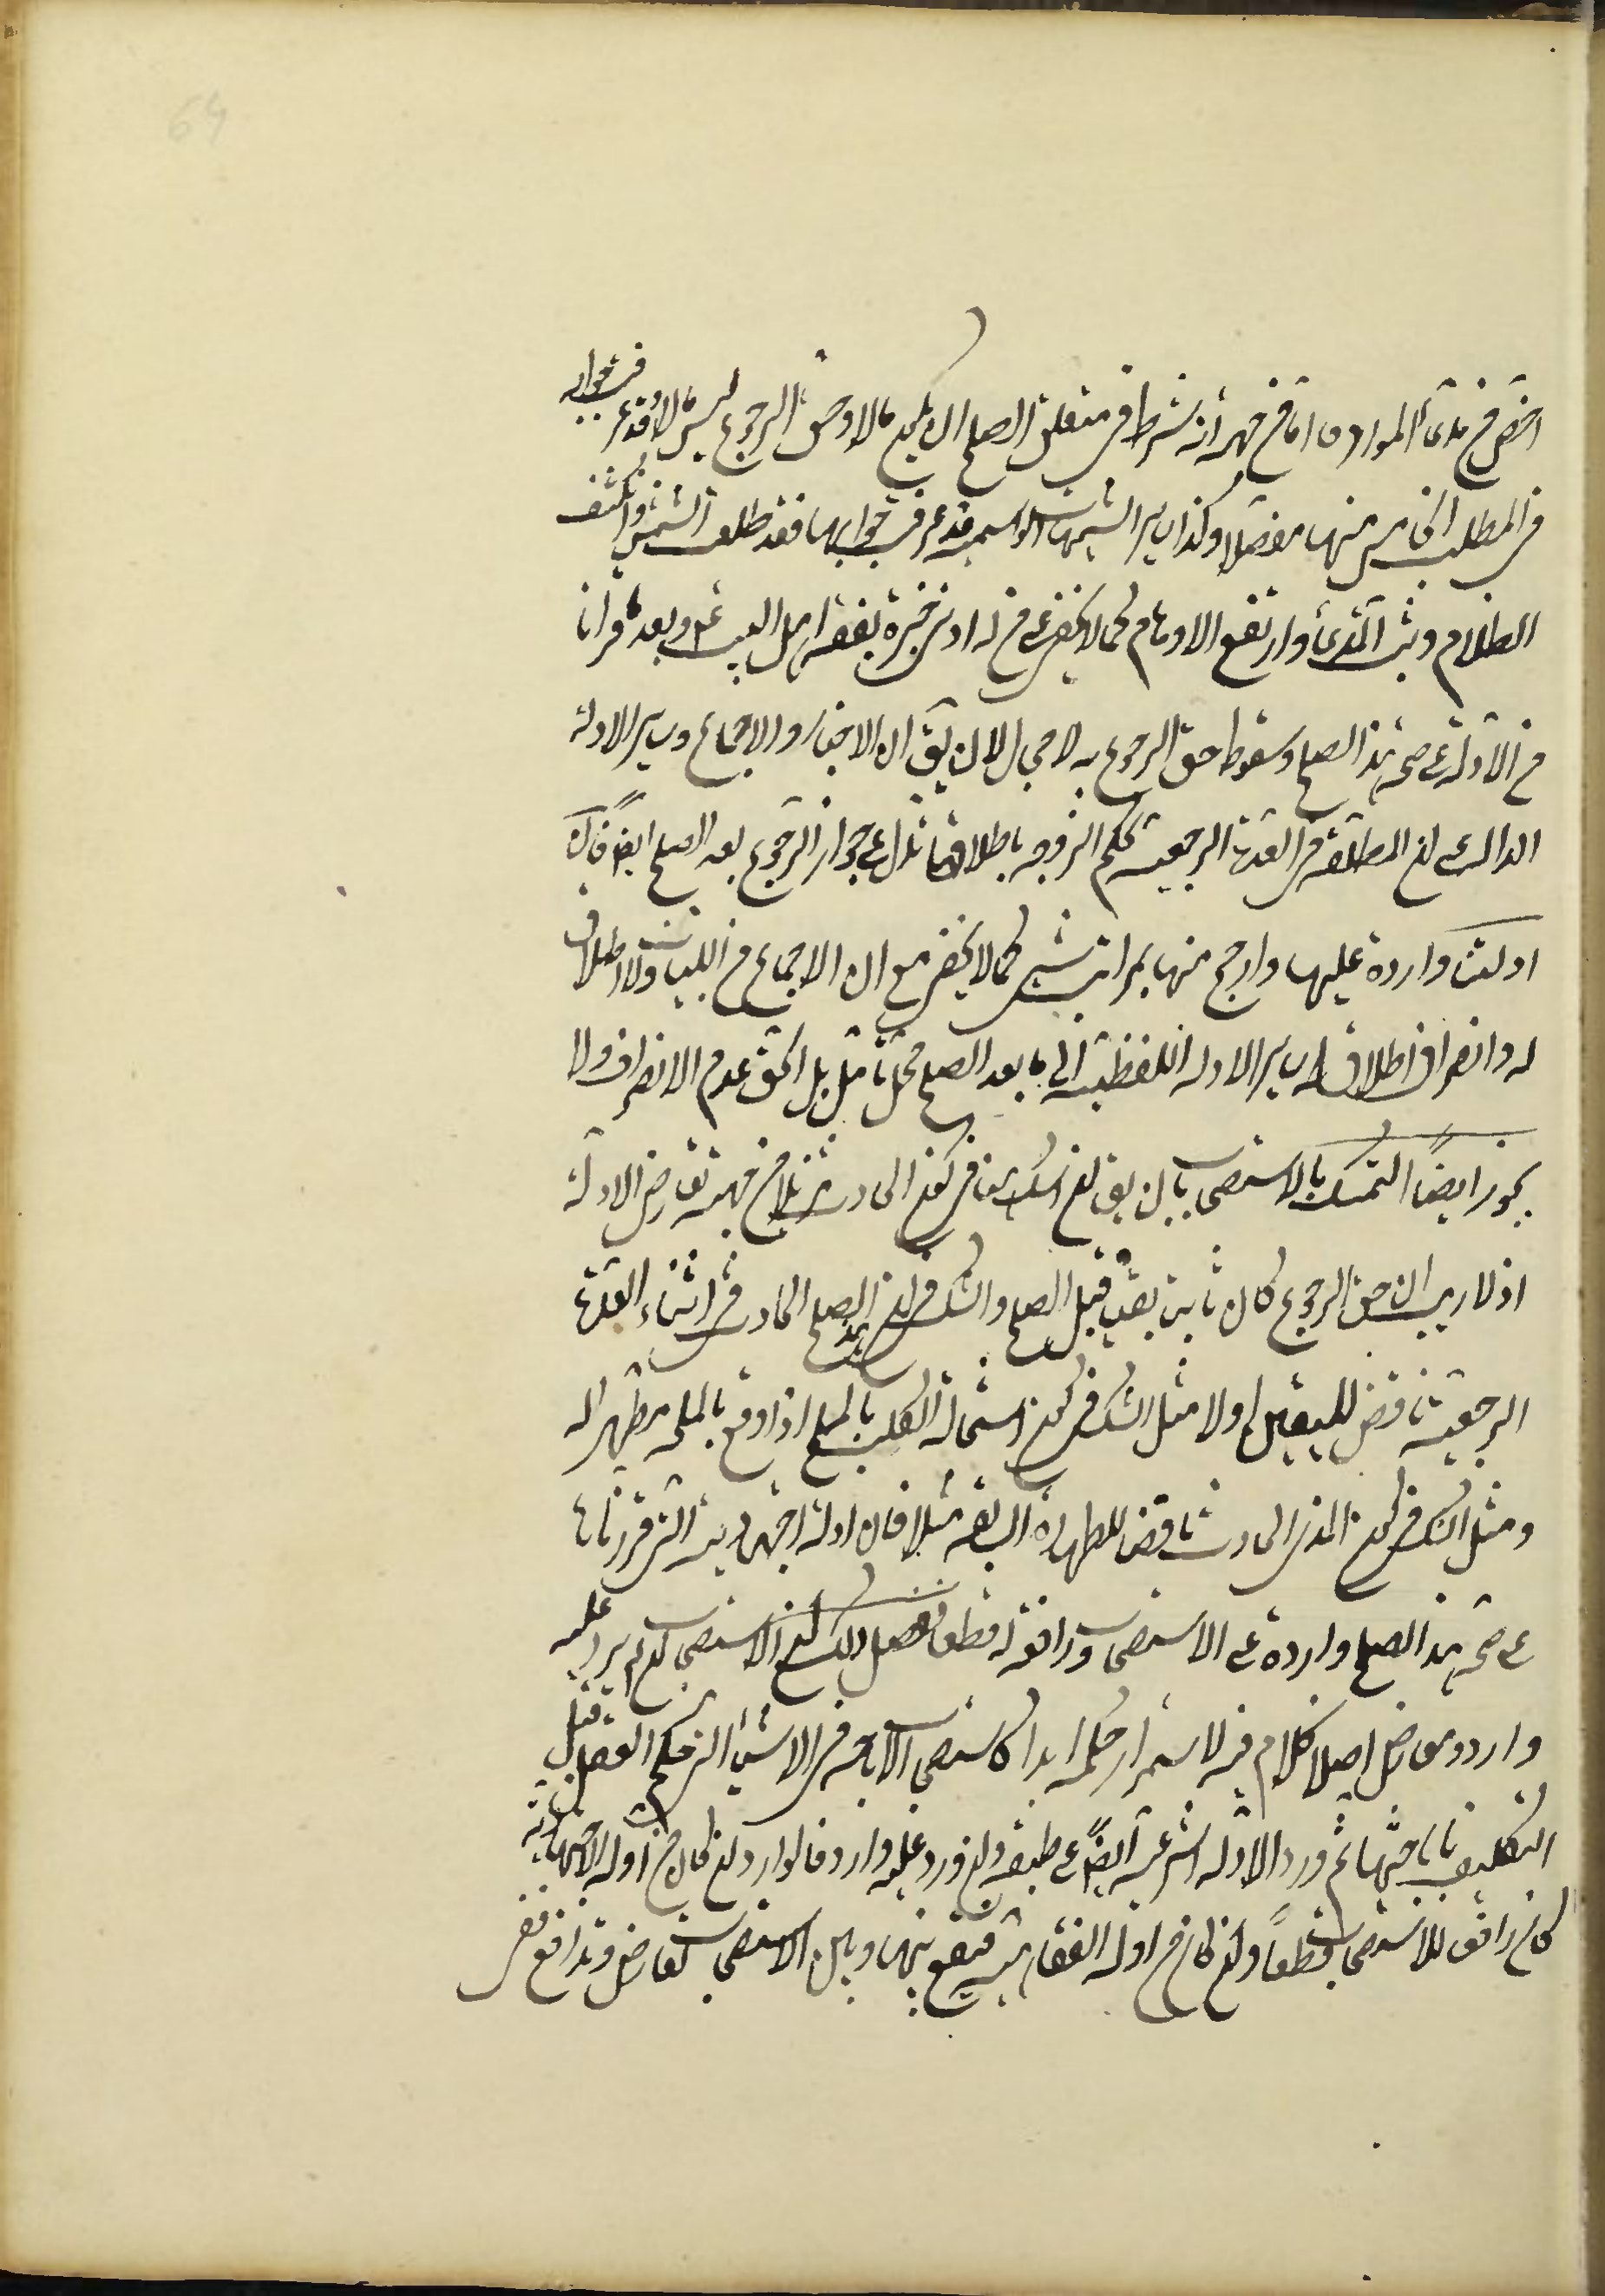 64
اخص من هذه الموارد اما من جهة انه يشترط في متعلق الصلح ان يكون مالا وحق الرجوع ليس مالا وقد عرفت جوابه
في المطلب الخامس منها مفصلا وكذا ساير الشبهات الواهية قد عرفت جوابها فقد طلعت الشمس وانكشف
الظلام وثبت المدعى وارتفع الاوهام كما لا يخفى على من له ادنى خبرة بفقه اهل البيت ع وبعد ما قرانا
من الادلة على صحة هذا الصلح وسقوط حق الرجوع به لا مجال لان يقال ان الاخبار والاجماع وساير الادلة
الدالة على ان المطلقة في العدة الرجعية بحكم الزوجة باطلاقها تدل على جواز الرجوع بعد الصلح ايضا فان
ادلتنا واردة عليها وارجح منها بمراتب شتى كما لا يخفى مع ان الاجماع من اللبيات ولا اطلاق
له وانصراف اطلاق ساير الادلة اللفظية الى ما بعد الصلح محل تامل بل الحق عدم الانصراف ولا
يجوز ايضا التمسك بالاستصحاب بان يقال ان الشك هنا في كون الحادث من جهة تعارض الادلة
اذ لا ريب ان حق الرجوع كان ثابتا يقينا قبل الصلح والشك في ان هذا الصلح الحادث في اثناء العدة
الرجعية ناقض لليقين ام لا مثل الشك في كون استحالة الكلب بالملح اذا وقع بالملحة مطهرا له
ومثل الشك في كون المذي الحادث ناقضا للطهارة السابقة مثلا فان ادلة اجتهادية التي قررناها
على صحة هذا الصلح واردة على الاستصحاب ورافعة له قطعا وحاصل ذلك ان الاستصحاب ان لم يرد عليه
وارد ومعارض اصلا لا كلام فيه لاستمرار حكمه ابدا كاستصحاب الاباحة في الاشياء التي حكم العقل قبل
التكليف باباحتها ثم ورد الادلة الشرعية ايضا على طبقه وان ورد عليه وارد فالوارد ان كان من ادلة الاجتهادية
كان رافعا للاستصحاب قطعا وان كان من ادلة الفقاهية فيقع بينها وبين الاستصحاب تعارض وتدافع ففي